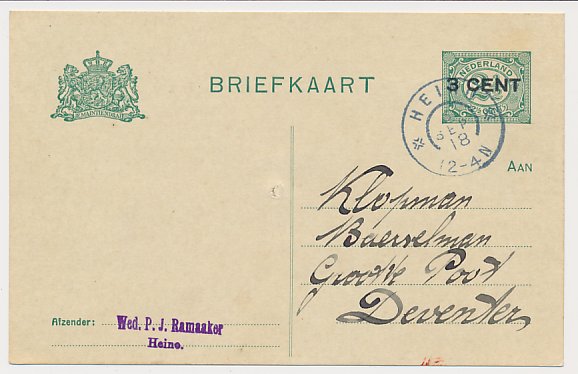 JE MAINTIENDRAI
BRIEFKAART
NEDERLAND
3 CENT
HEINO
SEP
18
12-4N
AAN
Klopman
Baerselman
Groote Poot
Deventer
Afzender: Wed. P. J. Ramaaker
Heino.